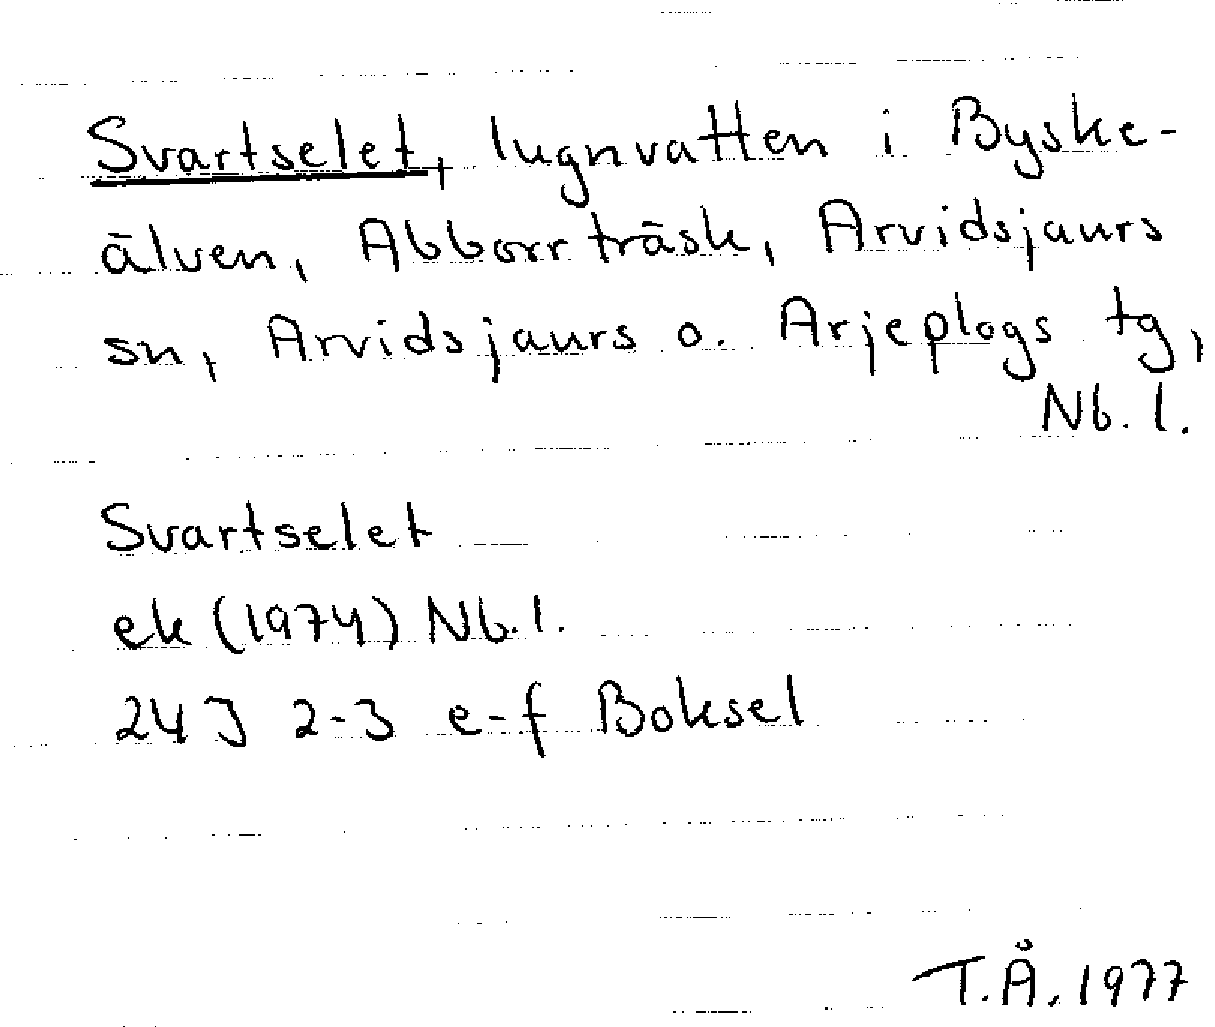 Svartselet, lugnvatten i Byske-
älven, Abborrträsk, Arvidsjaurs
sn, Arvidsjaurs o. Arjeplogs tg,
Nb. l.
Svartselet
ek (1974) Nb. l.
24J 2-3 e-f Boksel
T.Å. 1977